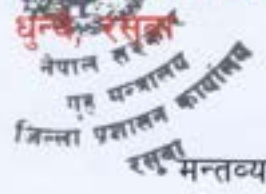 धुन्चे, रसुवा
नेपाल सरकार
गृह मन्त्रालय
जिल्ला प्रशासन कार्यालय
रसुवा
मन्तव्य